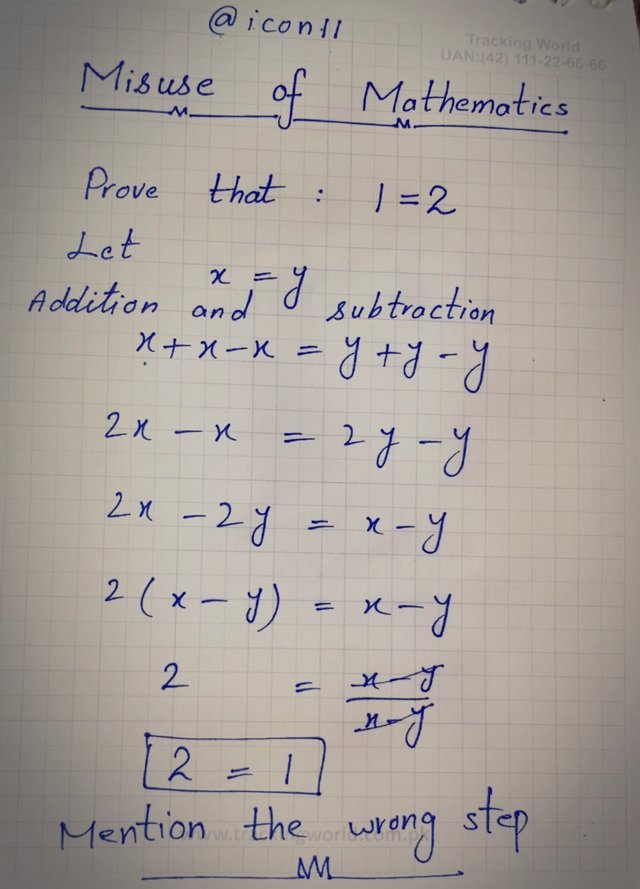 @icon11
Tracking World
UAN:(42) 111-22-66-66
Misuse of Mathematics
Prove that : 1=2
Let
x = y
Addition and subtraction
x+x-x = y+y-y
2x - x = 2y - y
2x - 2y = x - y
2(x - y) = x - y
2 = x-y
x-y
2 = 1
Mention the wrong step
www.trackingworld.com.pk